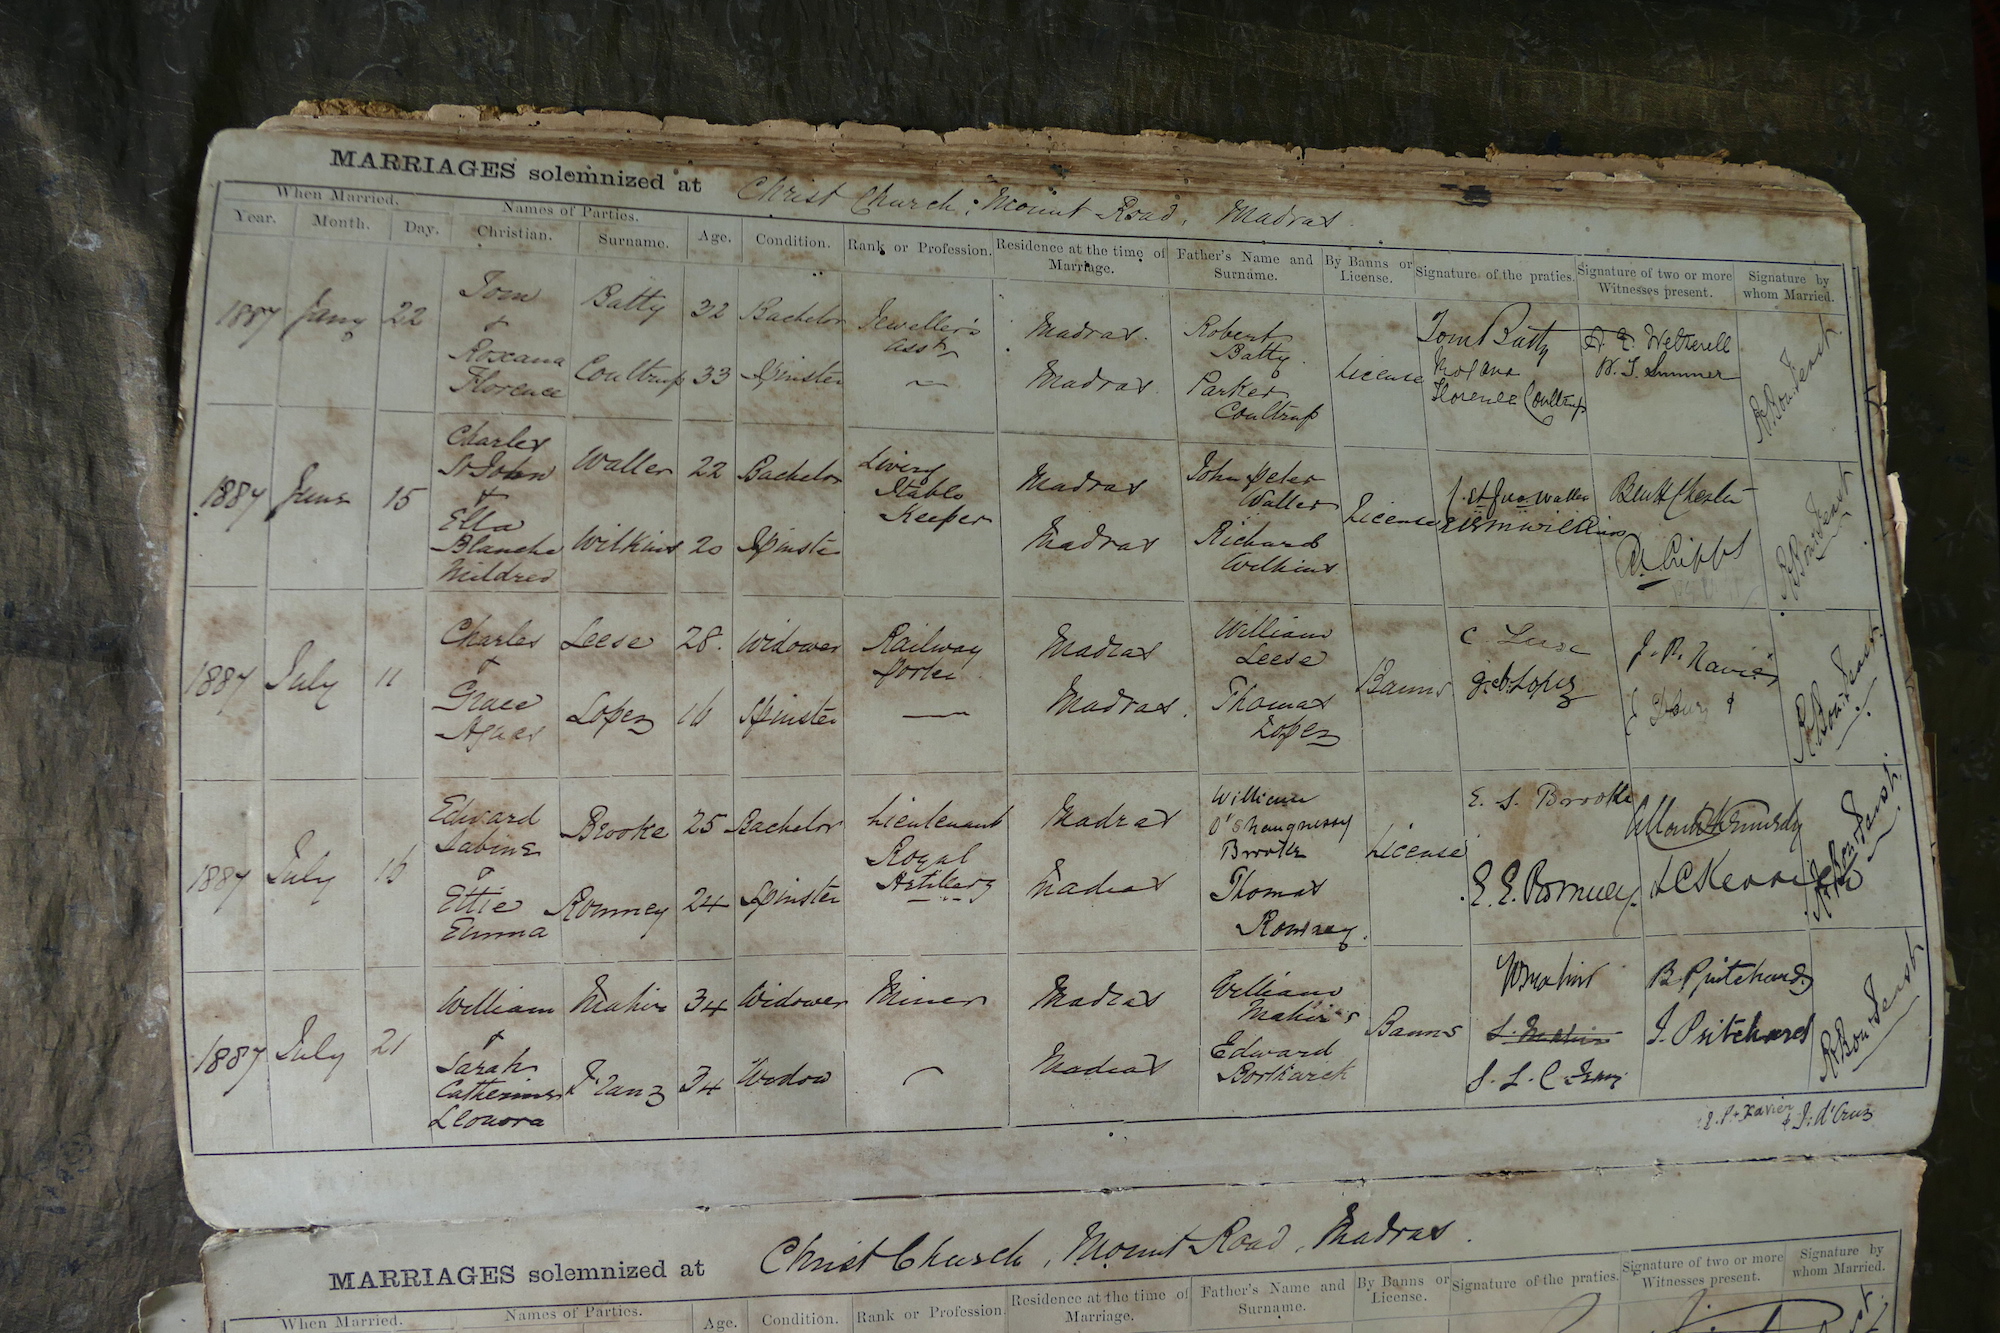 MARRIAGES solemnized at Christ Church, Mount Road, Madras.
When Married. Names of Parties.
Year. Month. Day. Christian. Surname. Age. Condition. Rank or Profession. Residence at the time of Marriage. Father's Name and Surname. By Banns or License. Signature of the praties. Signature of two or more Witnesses present. Signature by whom Married.
1887 Jany 22 Tom Batty 32 Bachelor Jeweller's Madras. Robert Tom Batty
& asst. Batty License W. T. Summer
Roxana Coultrup 33 Spinster Madras Parker Roxana
Florence Coultrup Florence Coultrup
Charles
St John Waller 22 Bachelor Living Madras John Peter
1887 June 15 & Stable Waller License
Ella Keeper
Blanche Wilkins 20 Spinster Madras Richard
Mildred Wilkins
Charles Leese 28. Widower Railway Madras William C. Leese
1887 July 11 & Porter Leese Banns
Grace Lopez 16 Spinster Madras. Thomas
Agnes Lopez
Edward Brooke 25 Bachelor Lieutenant Madras William E. S. Brooke
Sabine Royal O'Shaugnessy
1887 July 16 & Artillery Brooke License
Ettie Romney 24 Spinster Madras Thomas E. E. Romney
Emma Romney.
William 34 Widower Miner Madras William B. Pritchard
1887 July 21 & Banns J. Pritchard
Sarah Franz 34 Widow Madras Edward
Catherine S. L. C. Franz
Leonora
J. P. Xavier & J. d'Cruz
MARRIAGES solemnized at Christ Church, Mount Road, Madras.
When Married. Names of Parties. Age. Condition. Rank or Profession. Residence at the time of Marriage. Father's Name and Surname. By Banns or License. Signature of the praties. Signature of two or more Witnesses present. Signature by whom Married.